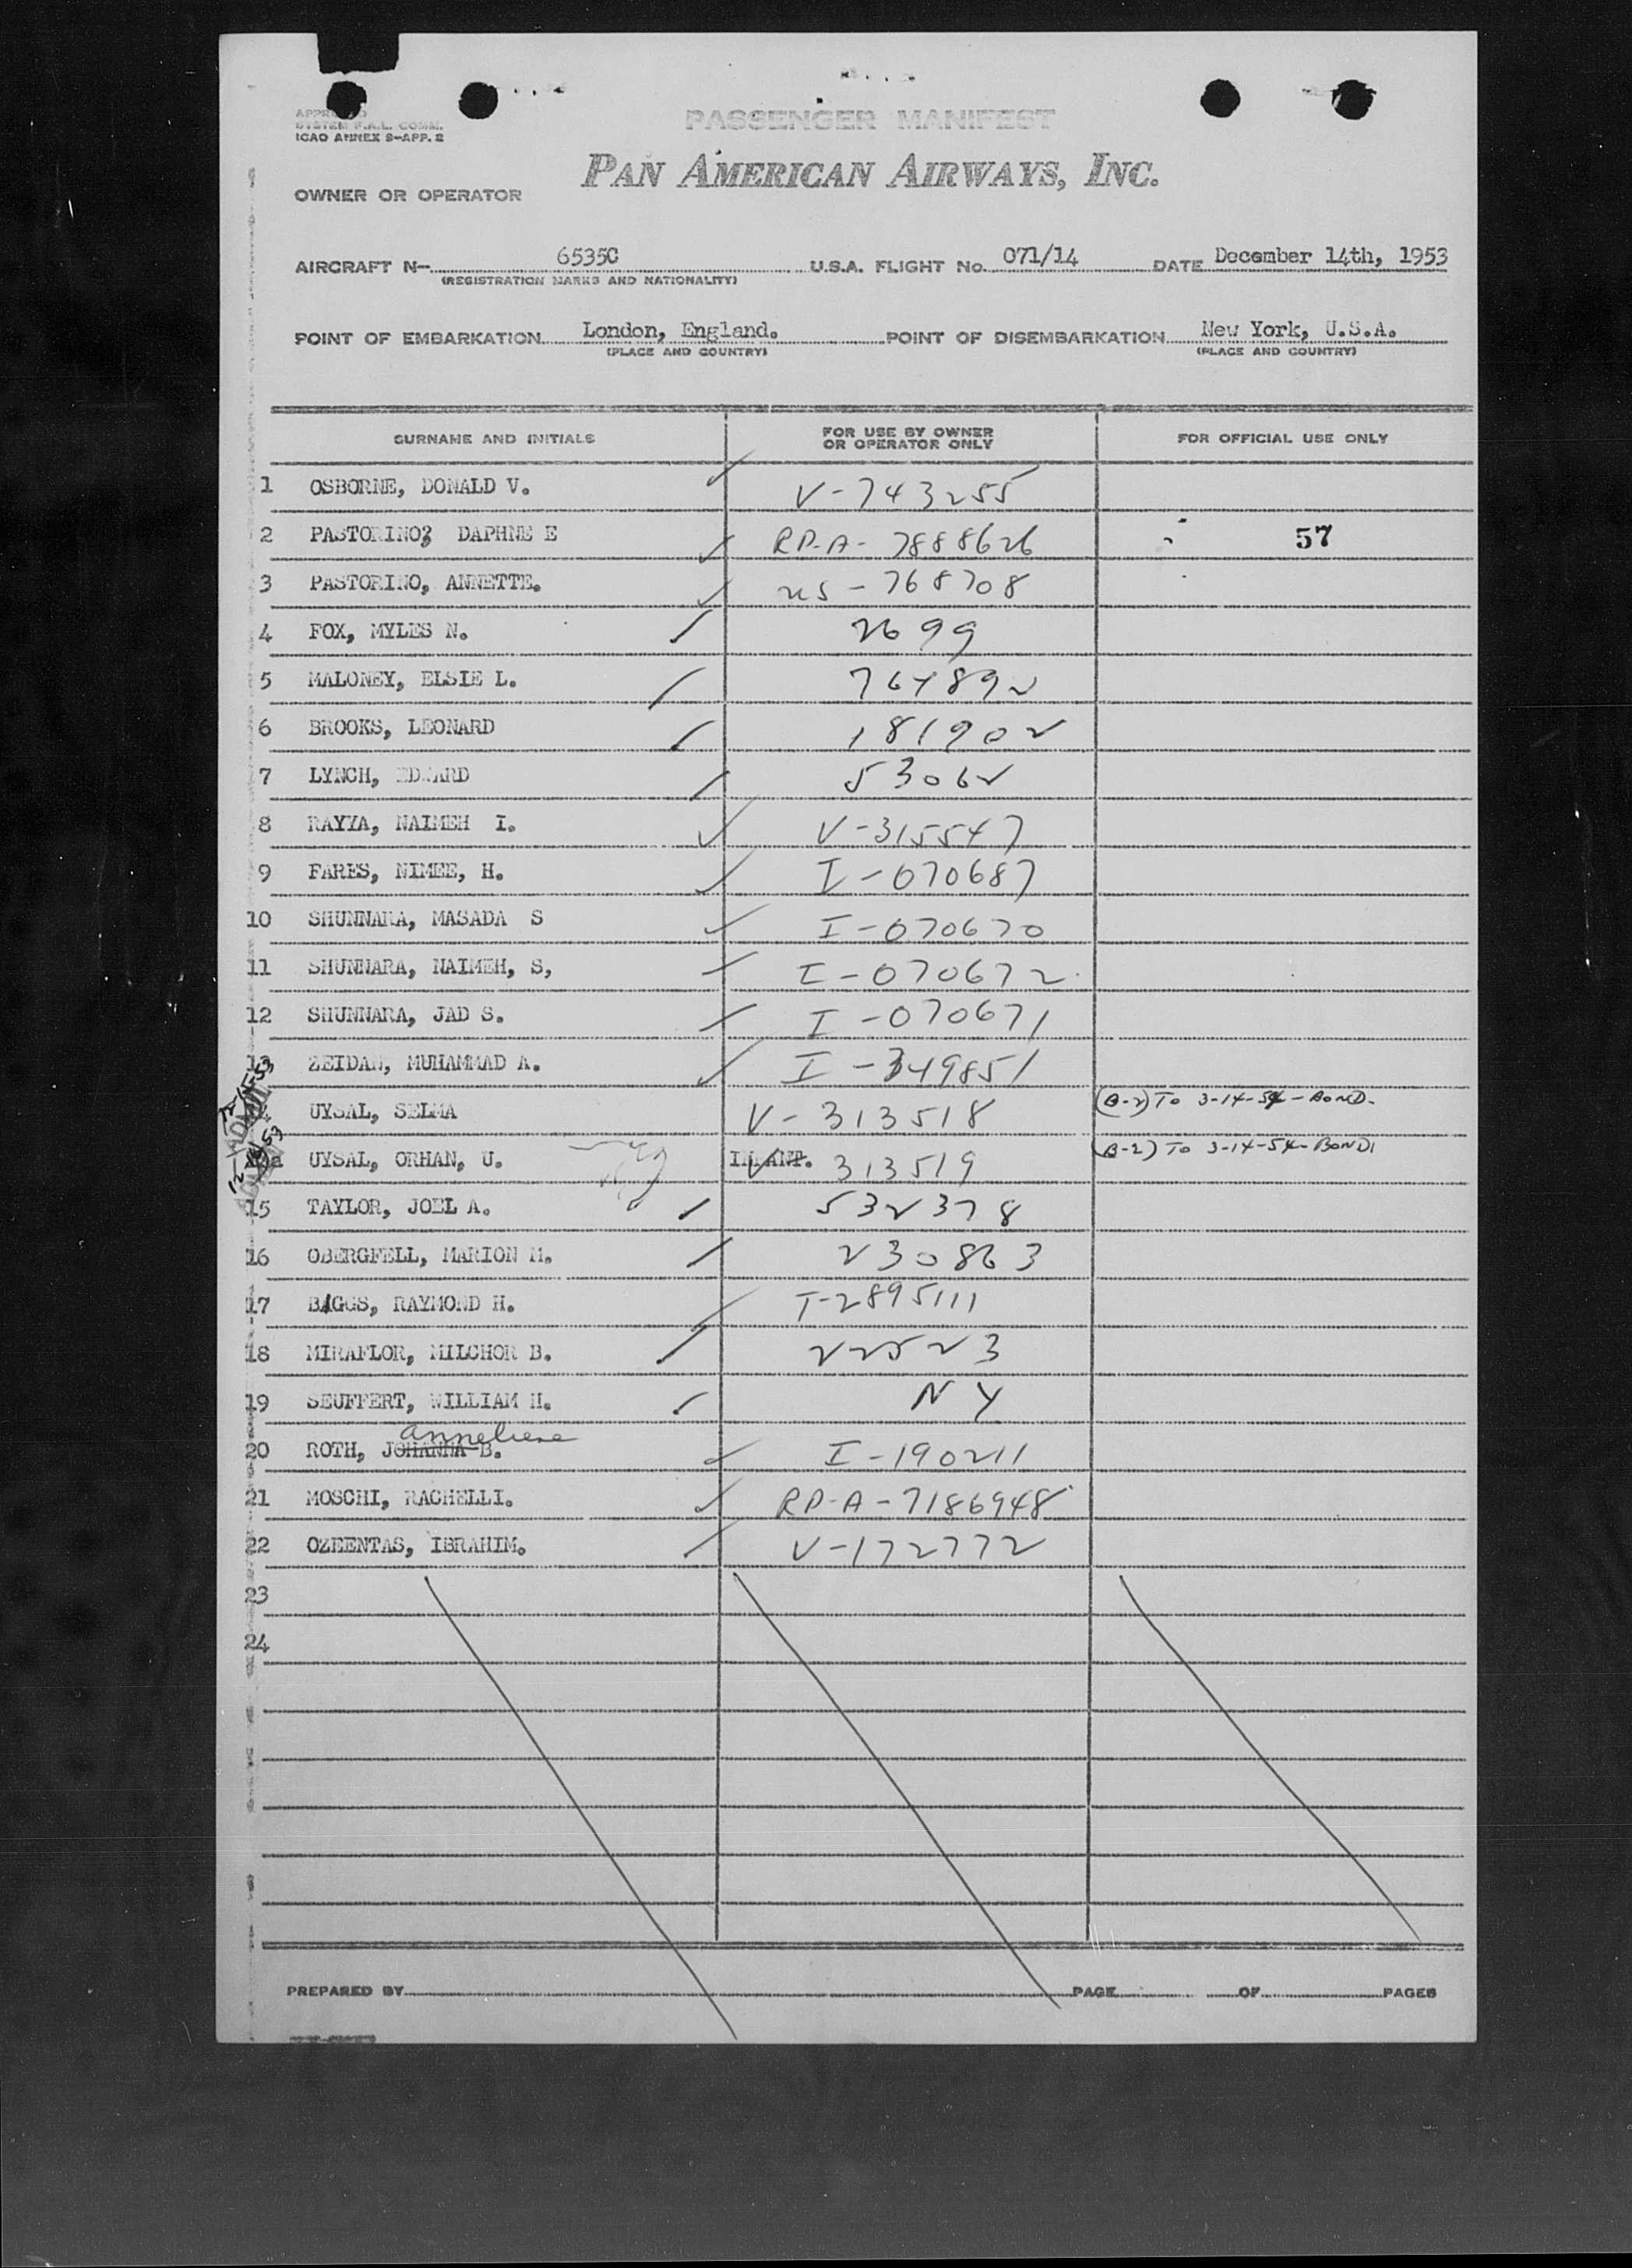 PASSENGER MANIFEST
SYSTEM F.A.L. COMM.
ICAO ANNEX 9-APP. 2
PAN AMERICAN AIRWAYS, INC.
OWNER OR OPERATOR
AIRCRAFT N- 6535C U.S.A. FLIGHT No. 071/14 DATE December 14th, 1953
(REGISTRATION MARKS AND NATIONALITY)
POINT OF EMBARKATION London, England. POINT OF DISEMBARKATION New York, U.S.A.
(PLACE AND COUNTRY) (PLACE AND COUNTRY)
SURNAME AND INITIALS FOR USE BY OWNER OR OPERATOR ONLY FOR OFFICIAL USE ONLY
1 OSBORNE, DONALD V. V-743255
2 PASTORINO, DAPHNE E RP-A-7888626 57
3 PASTORINO, ANNETTE. US-768708
4 FOX, MYLES N. 2699
5 MALONEY, ELSIE L. 764892
6 BROOKS, LEONARD 181902
7 LYNCH, EDWARD 53062
8 RAYYA, NAIMEH I. V-315547
9 FARES, NIMEE, H. I-070687
10 SHUNNARA, MASADA S I-070670
11 SHUNNARA, NAIMEH, S, I-070672
12 SHUNNARA, JAD S. I-070671
13 ZEIDAN, MUHAMMAD A. I-349851
UYSAL, SELMA V-313518 (B-2) TO 3-14-54-BOND.
UYSAL, ORHAN, U. INFANT. V 313519 (B-2) TO 3-14-54-BOND
15 TAYLOR, JOEL A. 532378
16 OBERGFELL, MARION M. 230863
17 BAGGS, RAYMOND H. T-2895111
18 MIRAFLOR, MILCHOR B. 22523
19 SEUFFERT, WILLIAM H. NY
Anneliese
20 ROTH, JOHANNA B. I-190211
21 MOSCHI, RACHELLI. RP-A-7186948
22 OZEENTAS, IBRAHIM. V-172772
23
24
PREPARED BY PAGE OF PAGES